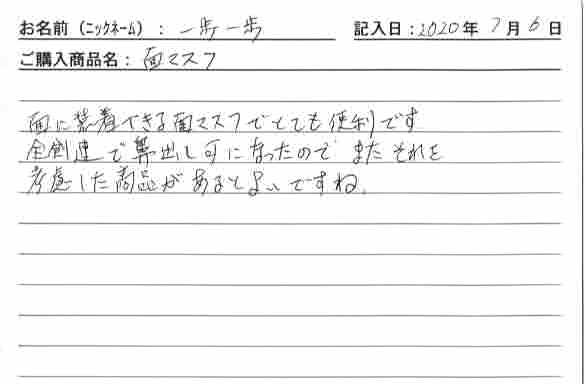 お名前（ニックネーム）： 一歩一歩 記入日：2020年 7月 6日
ご購入商品名： 面マスク
面に装着できる面マスクでとても便利です
全剣連で鼻出し可になったので またそれを
考慮した商品があるとよいですね。